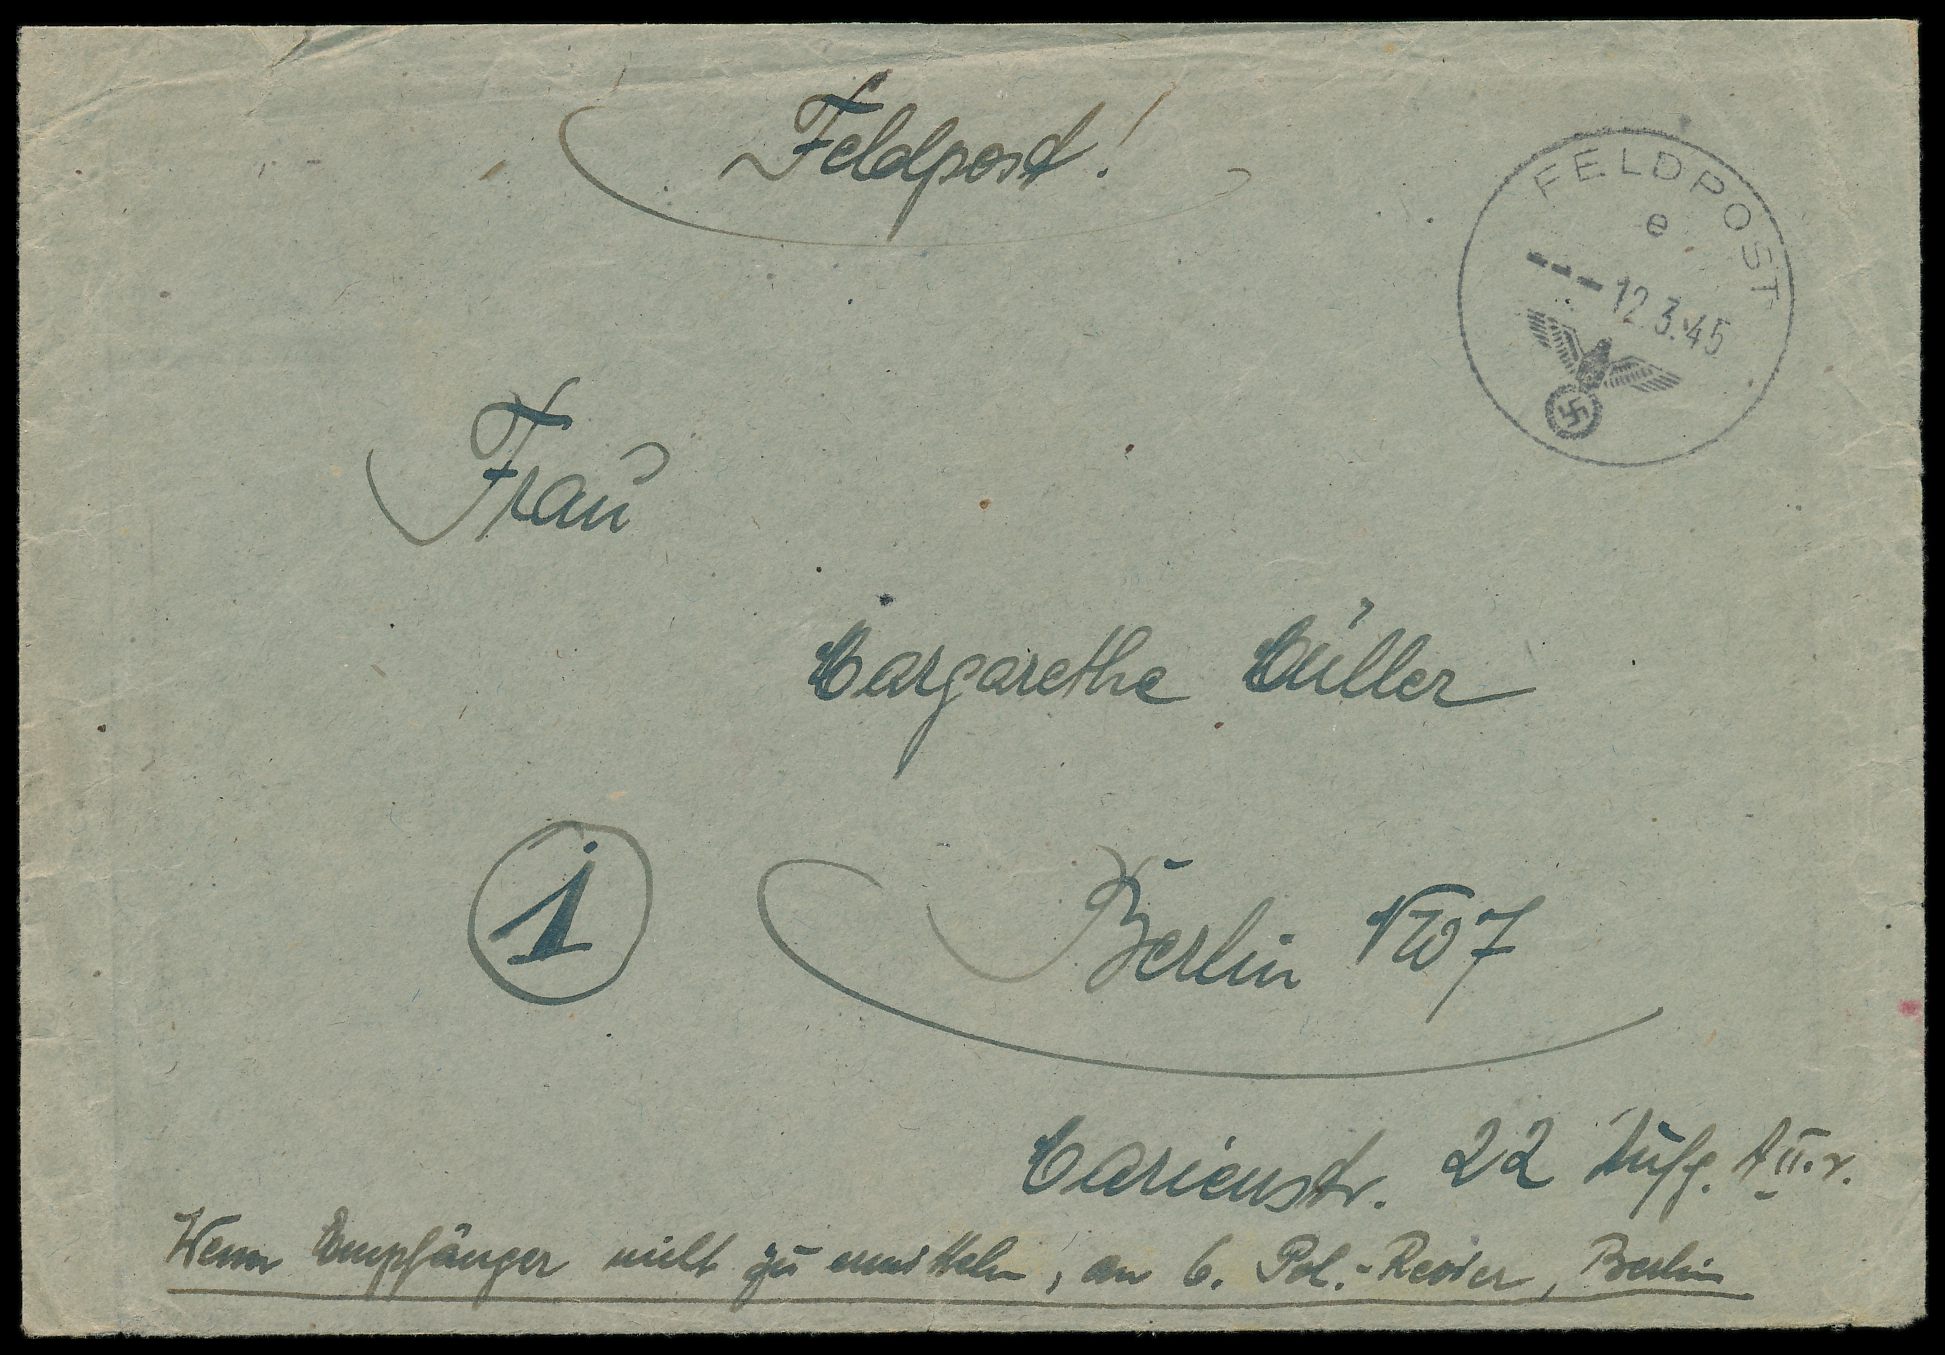 Feldpost!
FELDPOST
e
12.3.45
Frau
Margarethe Müller
1
Berlin NW 7
Marienstr. 22 Aufg. A II. r.
Wenn Empfänger nicht zu ermitteln, an 6. Pol.-Revier, Berlin